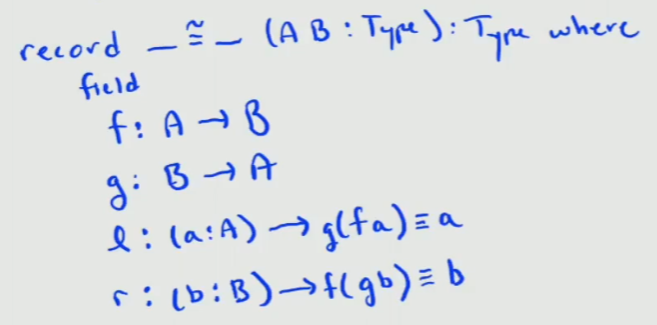 record _≅_ (A B : Type) : Type where
field
f : A → B
g : B → A
l : (a : A) → g(f a) ≡ a
r : (b : B) → f(g b) ≡ b